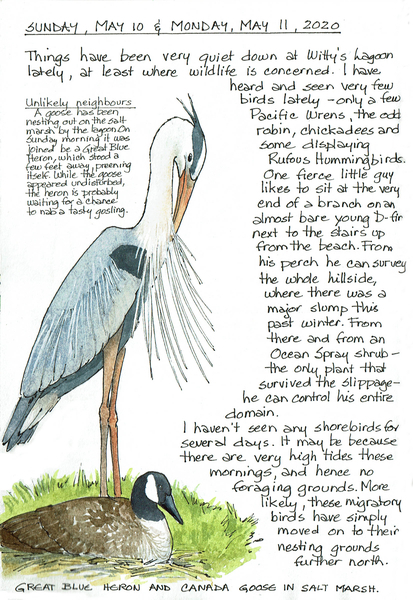 SUNDAY, MAY 10 & MONDAY, MAY 11, 2020
Things have been very quiet down at Witty's Lagoon
lately, at least where wildlife is concerned. I have
heard and seen very few
birds lately - only a few
Pacific Wrens, the odd
robin, chickadees and
some displaying
Rufous Hummingbirds.
One fierce little guy
likes to sit at the very
end of a branch on an
almost bare young D-fir
next to the stairs up
from the beach. From
his perch he can survey
the whole hillside,
where there was a
major slump this
past winter. From
there and from an
Ocean Spray shrub -
the only plant that
survived the slippage -
he can control his entire
domain.
I haven't seen any shorebirds for
several days. It may be because
there are very high tides these
mornings, and hence no
foraging grounds. More
likely, these migratory
birds have simply
moved on to their
nesting grounds
further north.
Unlikely neighbours
A goose has been
nesting out on the salt
marsh by the lagoon. On
Sunday morning it was
joined be a Great Blue
Heron, which stood a
few feet away, preening
itself. While the goose
appeared undisturbed,
the heron is probably
waiting for a chance
to nab a tasty gosling.
GREAT BLUE HERON AND CANADA GOOSE IN SALT MARSH.